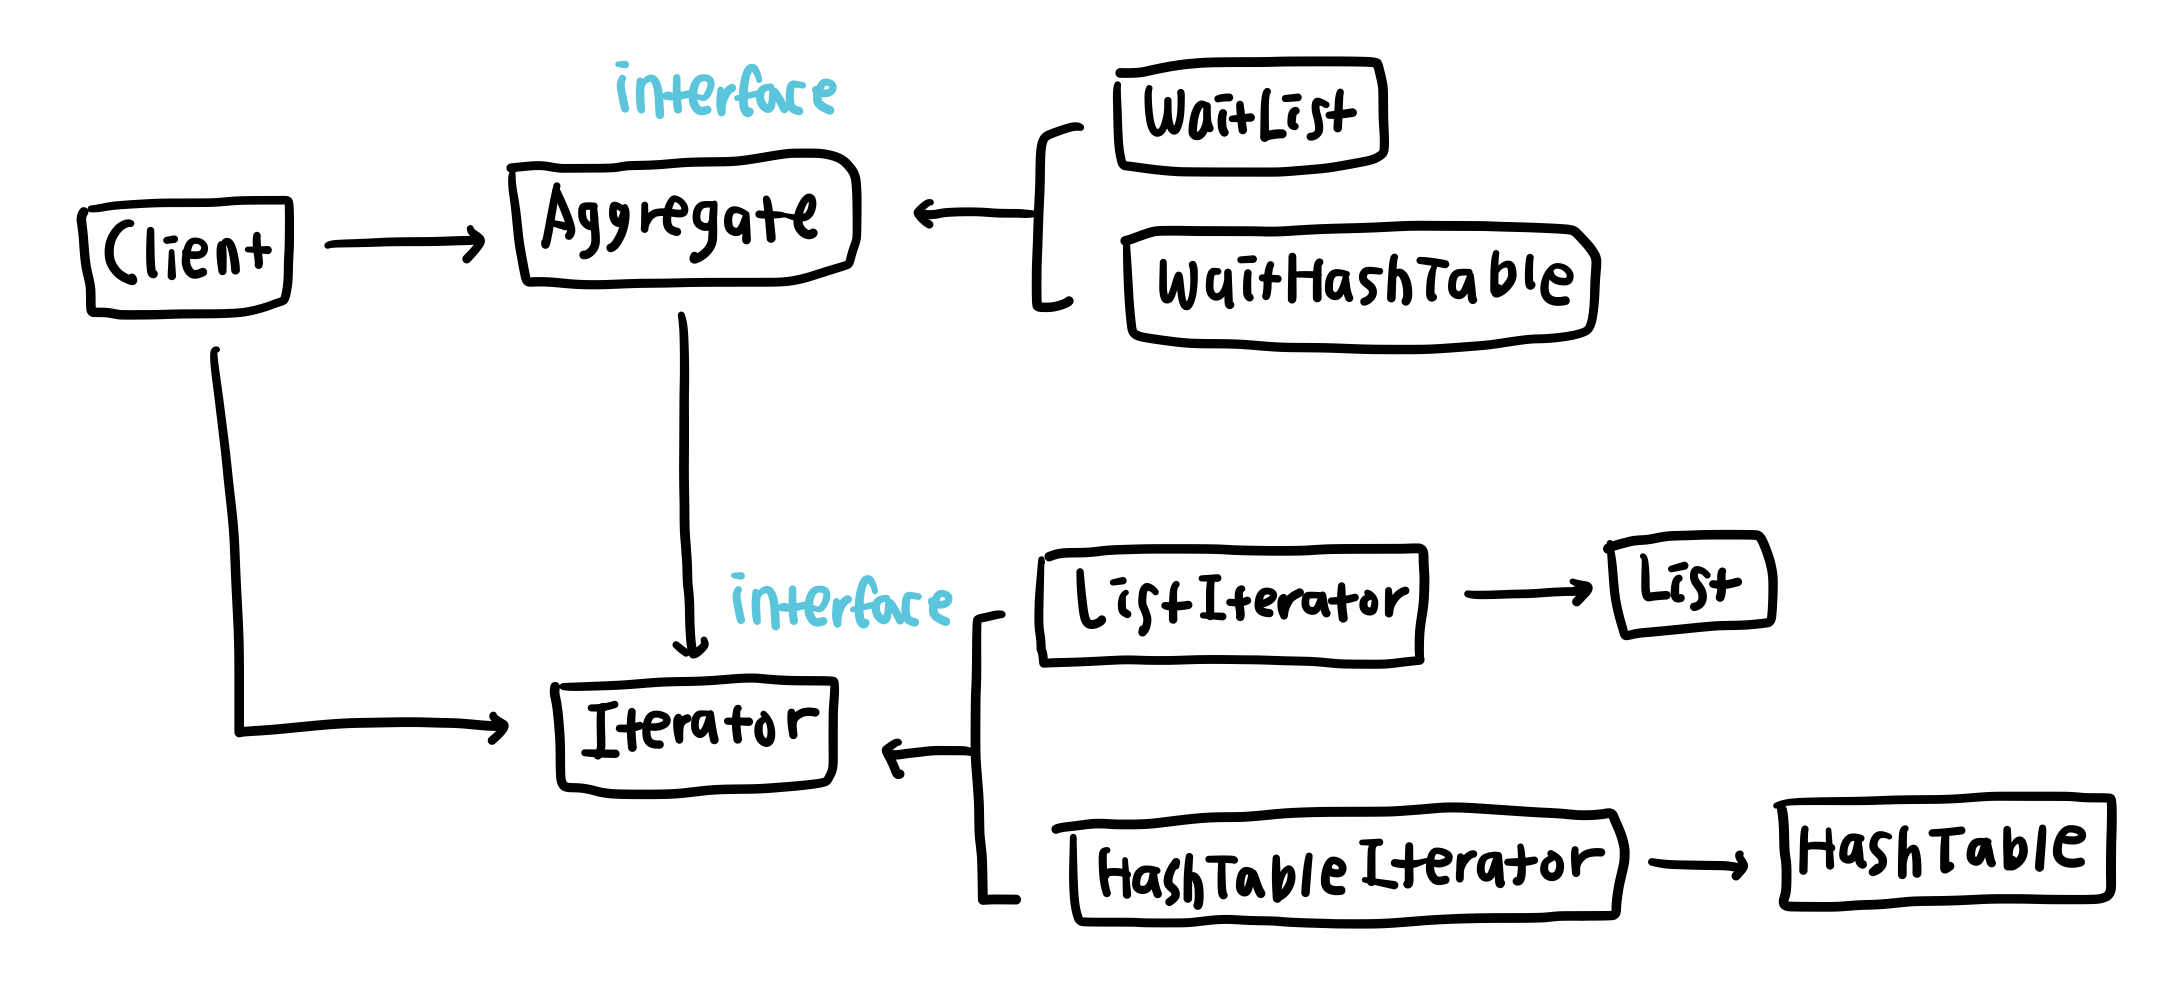 interface
WaitList
Aggregate
Client
WaitHashTable
interface
ListIterator
List
Iterator
HashTableIterator
HashTable